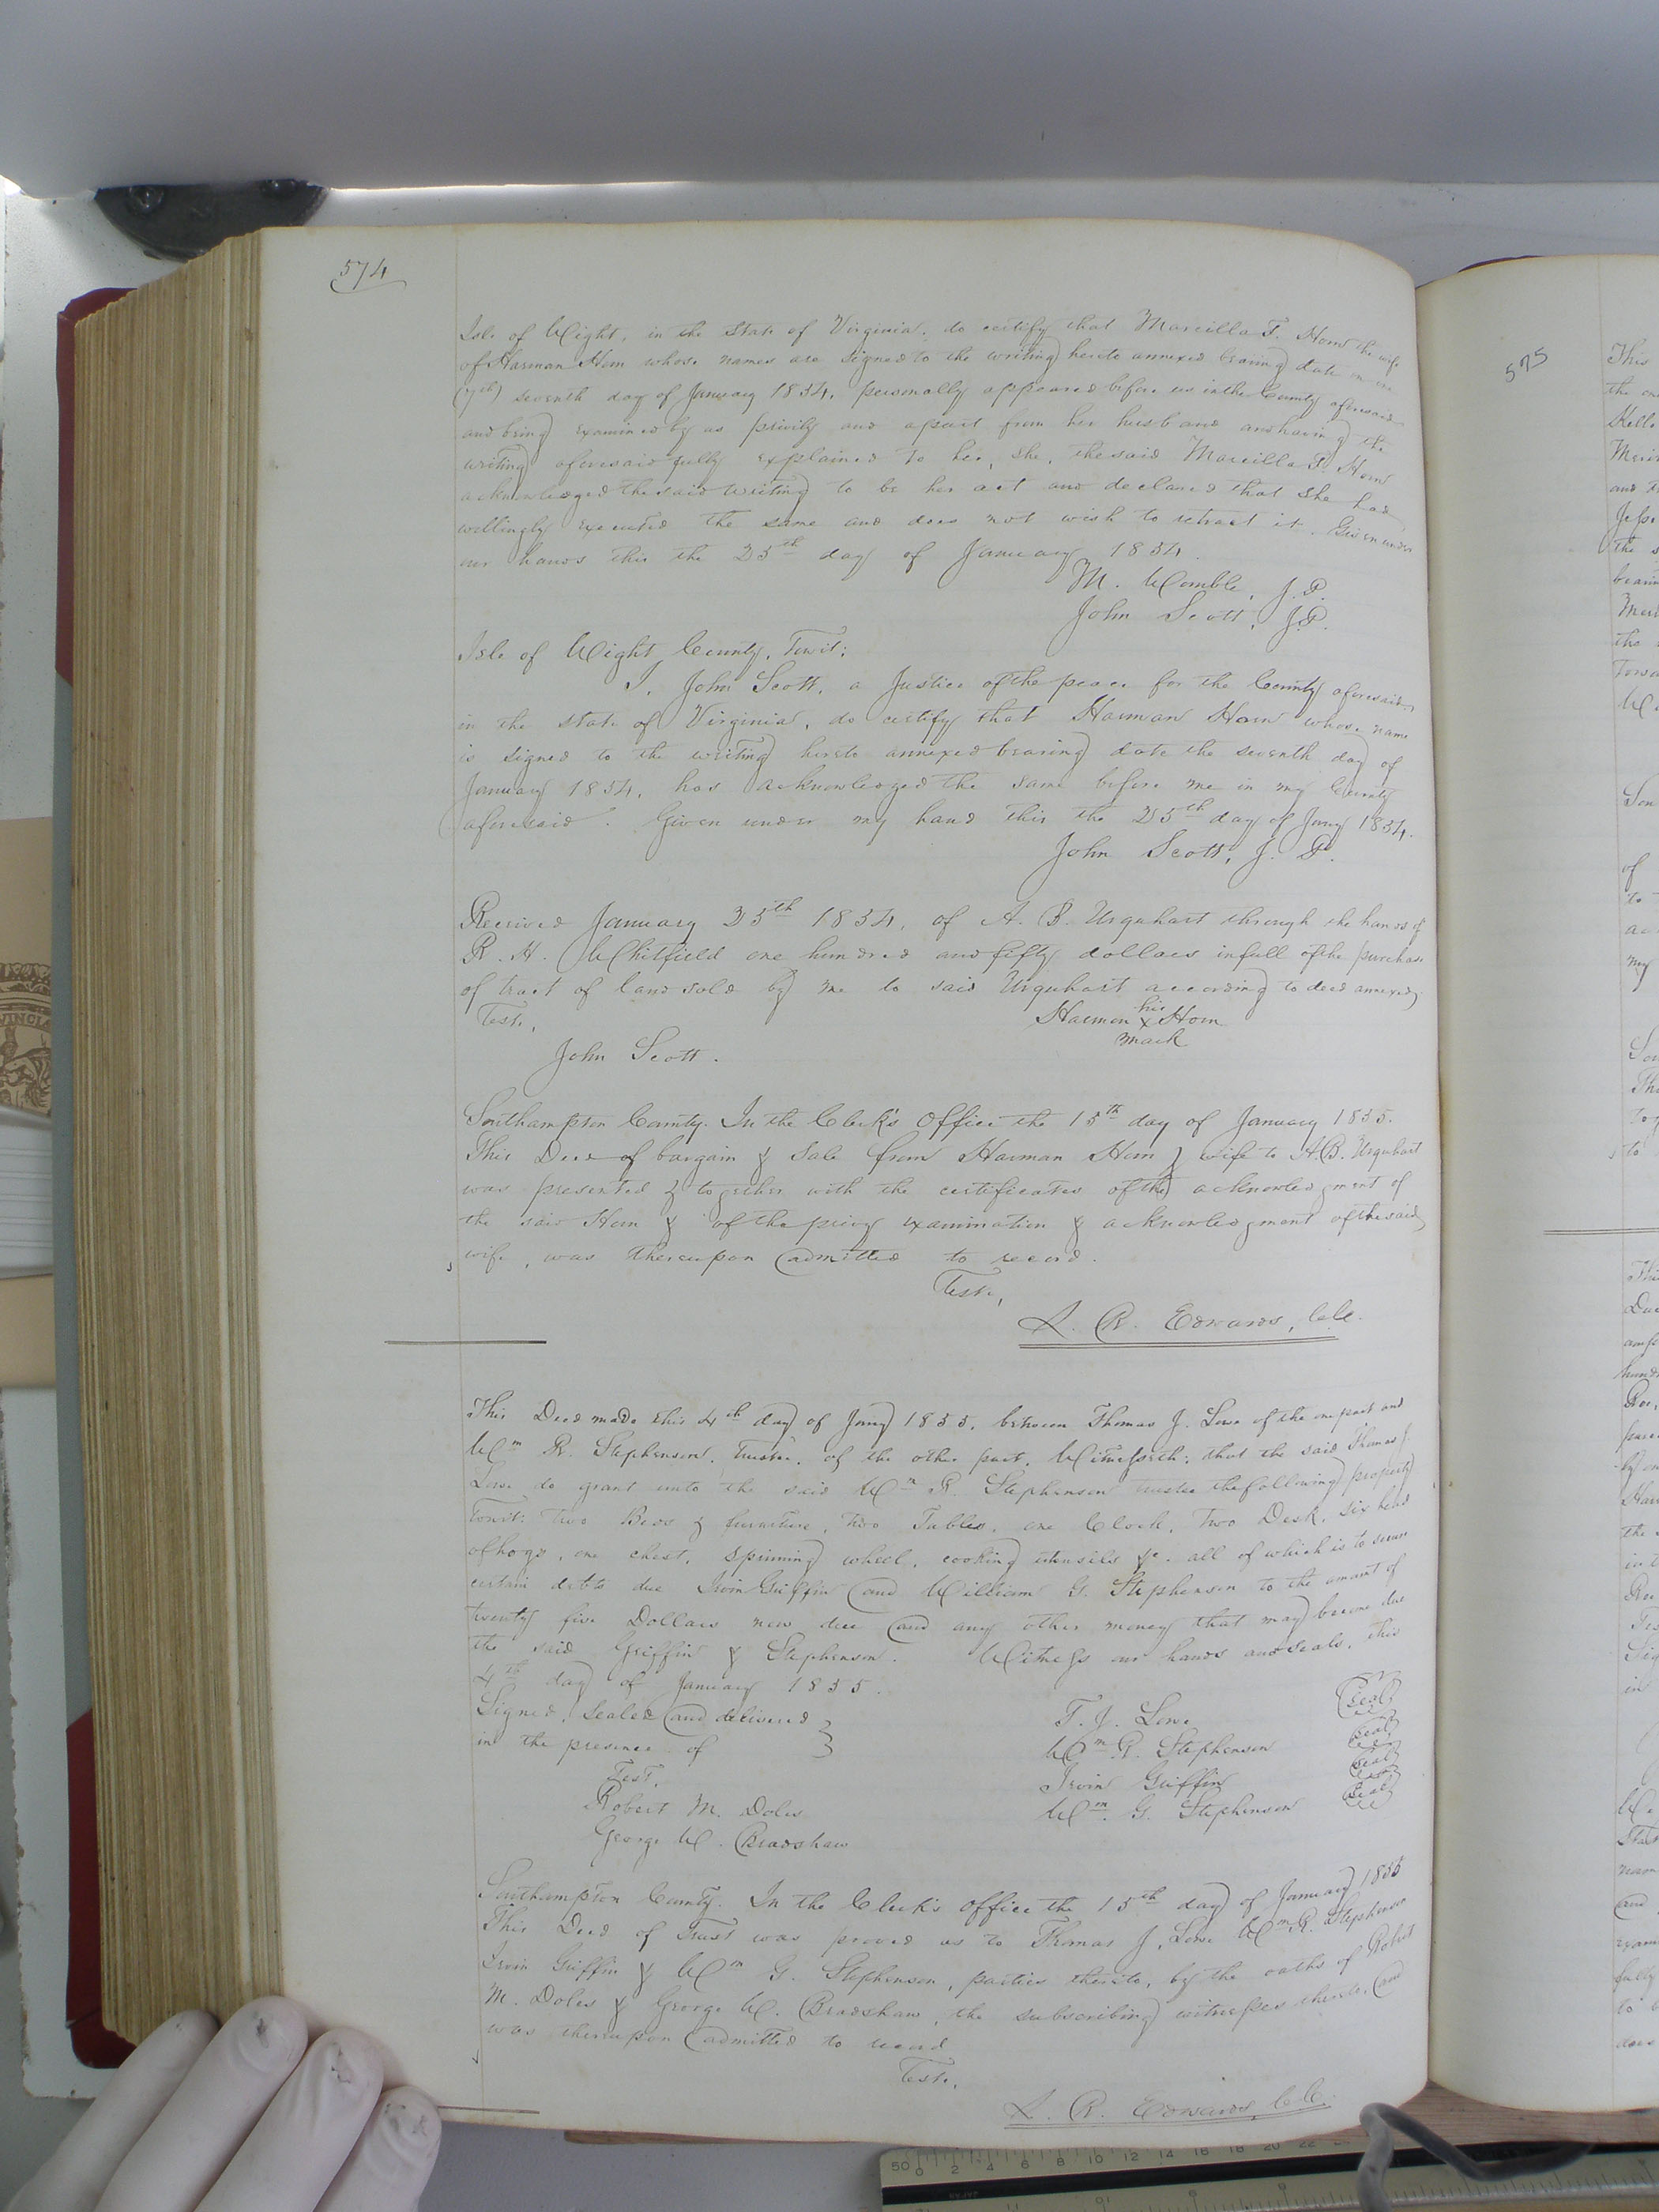 574
Isle of Wight, in the State of Virginia, do certify that Marcilla F. Horn the wife
of Harman Horn whose names are signed to the writing hereto annexed bearing date on the
(7th) seventh day of January 1854, personally appeared before us in the County aforesaid
and being examined by us privily and apart from her husband and having the
writing aforesaid fully explained to her, she, the said Marcilla F. Horn
acknowledged the said writing to be her act and declared that she had
willingly executed the same and does not wish to retract it. Given under
our hands this the 25th day of January 1854.
M. Womble, J.P.
John Scott, J.P.
Isle of Wight County, Towit:
I, John Scott, a Justice of the peace for the County aforesaid,
in the state of Virginia, do certify that Harman Horn whose name
is signed to the writing hereto annexed bearing date the seventh day of
January 1854, has acknowledged the same before me in my County
aforesaid. Given under my hand this the 25th day of Jany 1854.
John Scott, J. P.
Received January 25th 1854, of A. B. Urquhart through the hands of
R. H. Whitfield one hundred and fifty dollars in full of the purchase
of tract of land sold by me to said Urquhart according to deed annexed.
Teste, Harmon his x Horn
mark
John Scott.
Southampton County. In the Clerk's Office the 15th day of January 1855.
This Deed of bargain & Sale from Harman Horn & wife to A.B. Urquhart
was presented & together with the certificates of the acknowledgment of
the said Horn & of the privy examination & acknowledgment of the said
wife, was thereupon admitted to record.
Teste,
L. R. Edwards, C.C.
This Deed made this 4th day of Jany 1855, between Thomas J. Lowe of the one part and
Wm R. Stephenson, trustee, of the other part, Witnesseth: that the said Thomas J.
Lowe do grant unto the said Wm R. Stephenson trustee the following property
Towit: Two Beds & furniture, two Tables, one Clock, Two Desk, six head
of hogs, one chest, spinning wheel, cooking utensils &c. all of which is to secure
certain debts due Irvin Griffin and William G. Stephenson to the amount of
twenty five Dollars now due and any other money that may become due
the said Griffin & Stephenson. Witness our hands and seals, this
4th day of January 1855.
Signed, sealed and delivered } T. J. Lowe Seal
in the presence of } Wm R. Stephenson Seal
Test, Irvin Griffin Seal
Robert M. Doles Wm. G. Stephenson Seal
George W. Bradshaw
Southampton County. In the Clerk's office the 15th day of January 1855
This Deed of Trust was proved as to Thomas J. Lowe Wm R. Stephenson
Irvin Griffin & Wm G. Stephenson, parties thereto, by the oaths of Robert
M. Doles & George W. Bradshaw, the subscribing witnesses thereto, and
was thereupon admitted to record.
Teste,
L. R. Edwards, C.C.
575